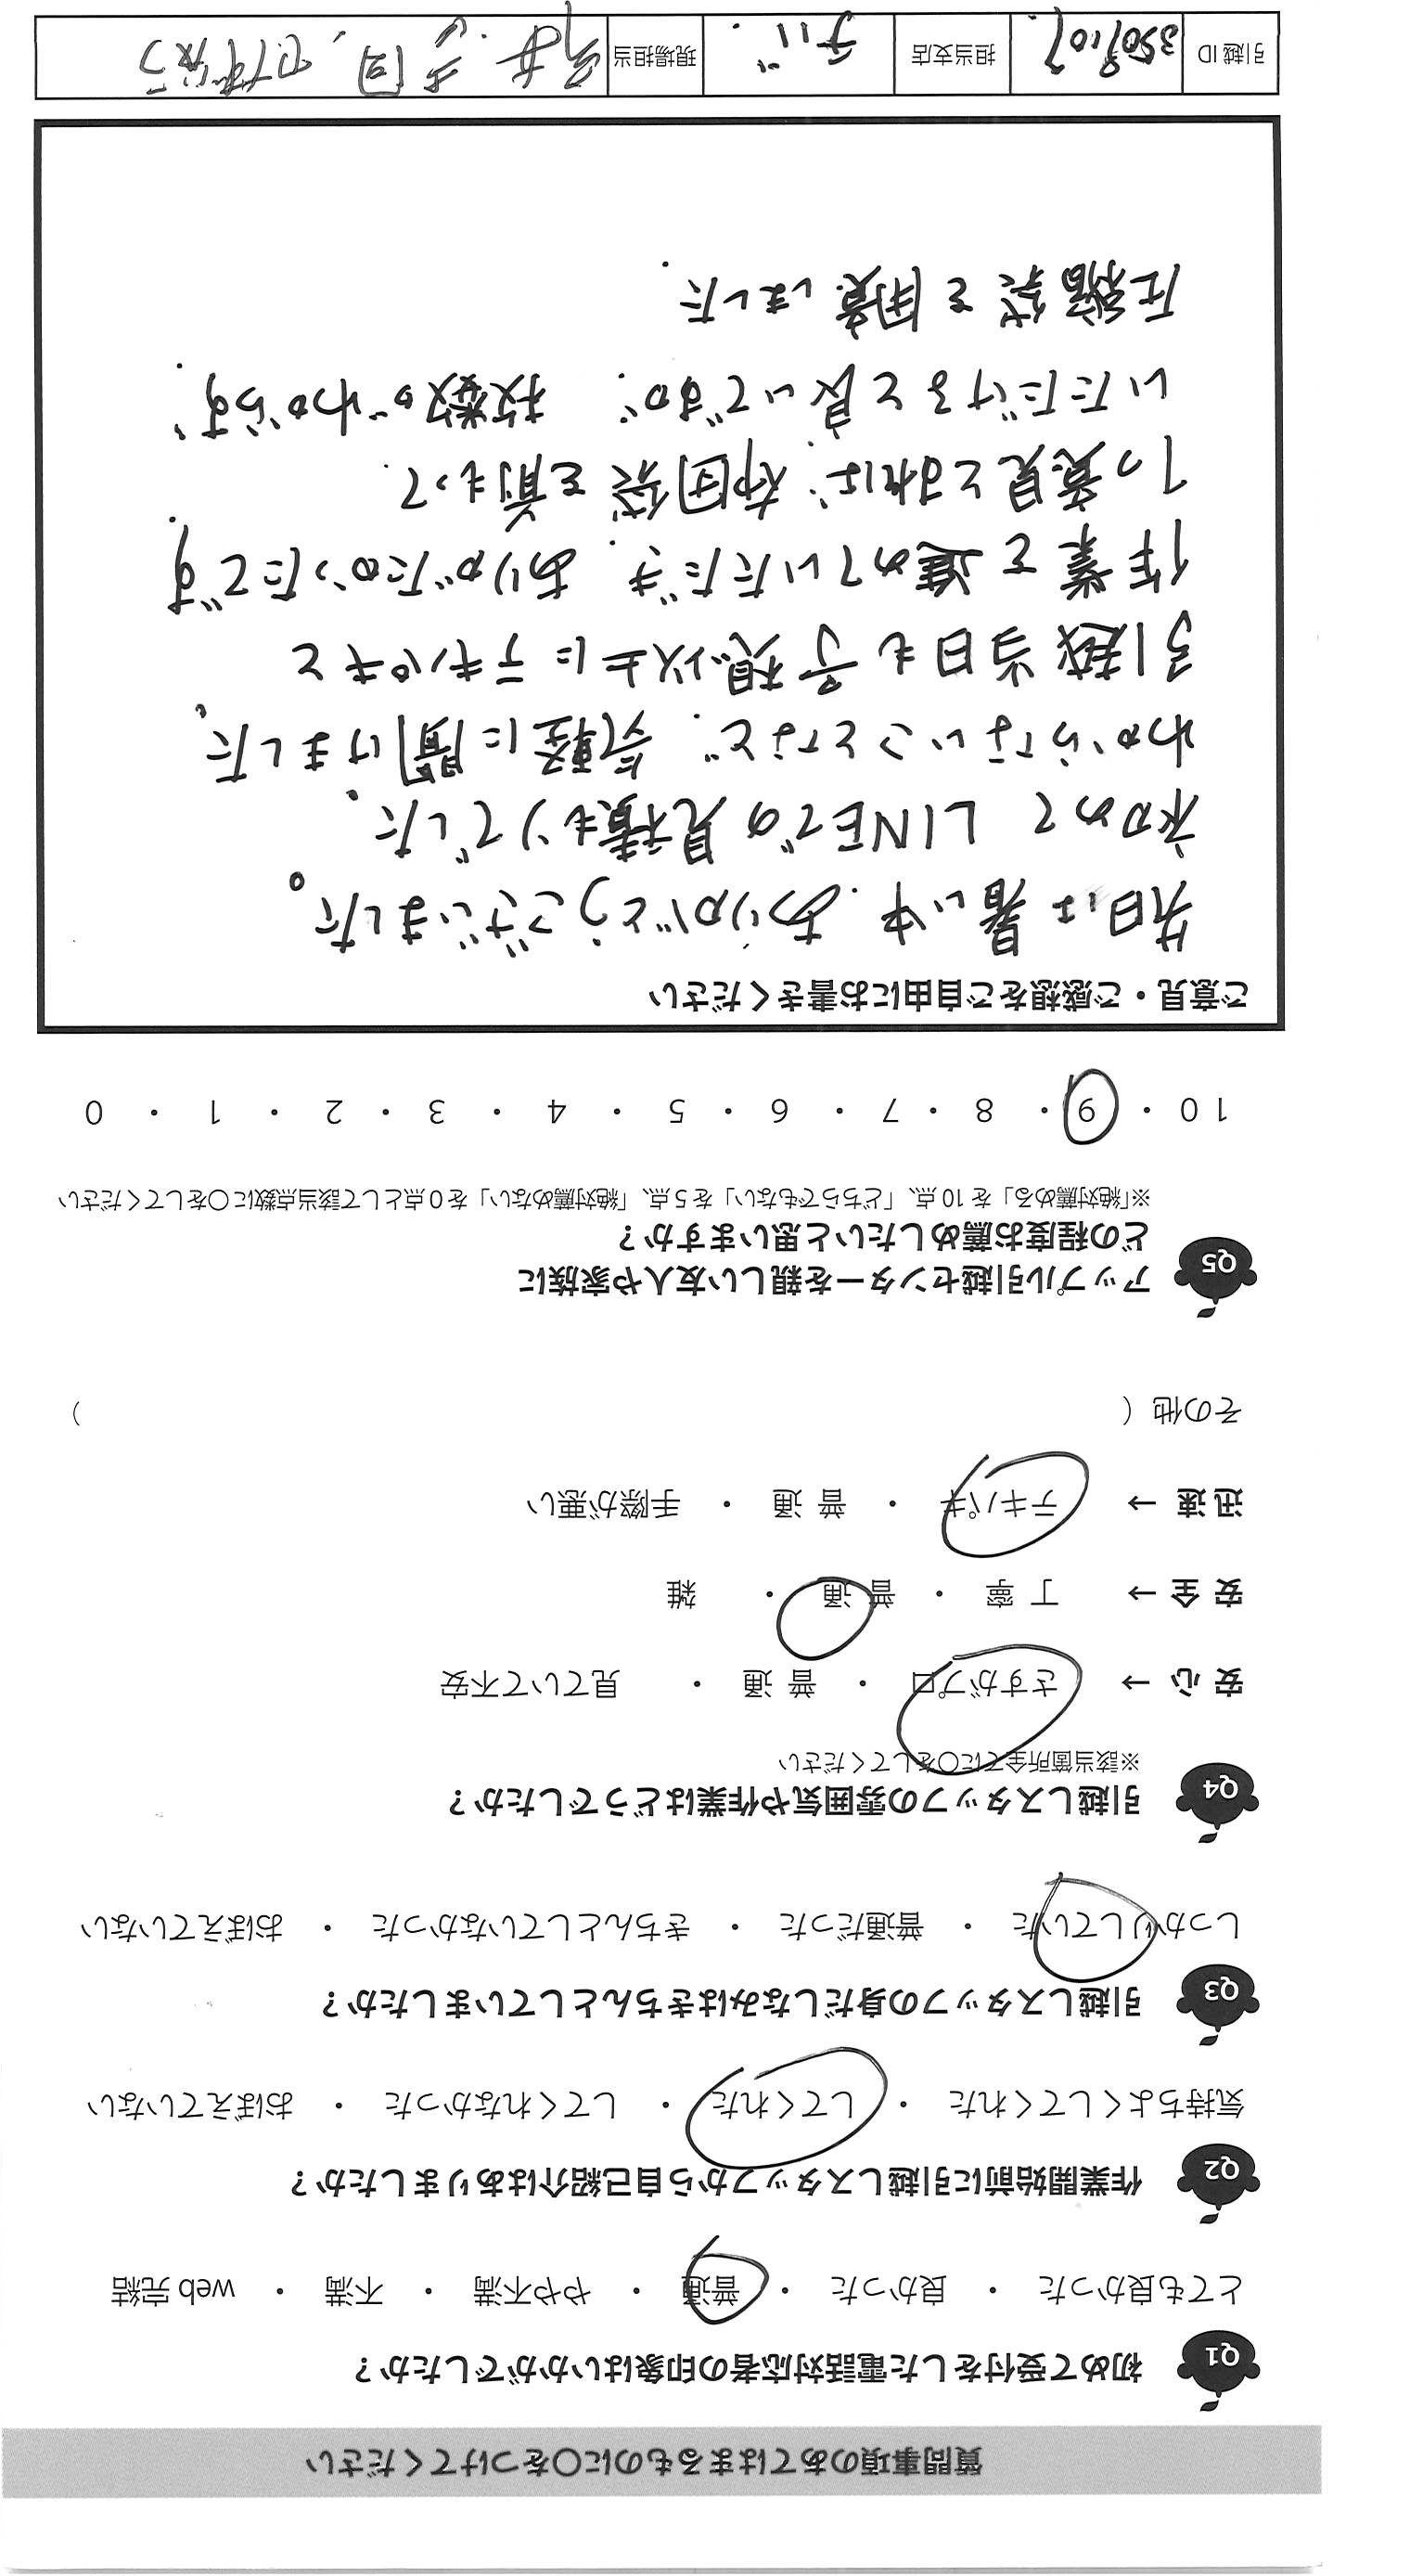 質問事項のあてはまるものに〇をつけてください
Q1 初めて受付をした電話対応者の印象はいかがでしたか？
とても良かった ・ 良かった ・ 普通 ・ やや不満 ・ 不満 ・ web 完結
Q2 作業開始前に引越しスタッフから自己紹介はありましたか？
気持ちよくしてくれた ・ してくれた ・ してくれなかった ・ おぼえていない
Q3 引越しスタッフの身だしなみはきちんとしていましたか？
しっかりしていた ・ 普通だった ・ きちんとしていなかった ・ おぼえていない
Q4 引越しスタッフの雰囲気や作業はどうでしたか？
※該当箇所全てに〇をしてください
安 心 → さすがプロ ・ 普 通 ・ 見ていて不安
安 全 → 丁 寧 ・ 普 通 ・ 雑
迅 速 → テキパキ ・ 普 通 ・ 手際が悪い
その他（ ）
Q5 アップル引越センターを親しい友人や家族に
どの程度お薦めしたいと思いますか？
※「絶対薦める」を 10 点、「どちらでもない」を 5 点、「絶対薦めない」を 0 点として該当点数に〇をしてください
10 ・ 9 ・ 8 ・ 7 ・ 6 ・ 5 ・ 4 ・ 3 ・ 2 ・ 1 ・ 0
ご意見・ご感想をご自由にお書きください
先日は暑い中、ありがとうございました。
初めて LINEでの見積もりでした、
わからないことなど、気軽に聞けました、
引越当日も予想以上にテキパキと
作業を進めていただき、ありがたかったです、
1つ意見とすれば、布団袋を前もって、
いただけると良いですが、枚数がわからず、
圧縮袋を用意しました、
引越 ID 担当支店 現場担当